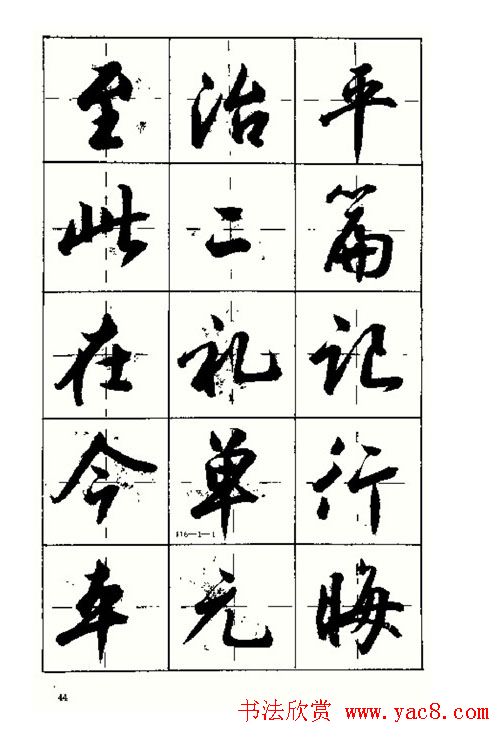 至治平
此二篇
在礼记
今单行
本元晦
44
书法欣赏 www.yac8.com